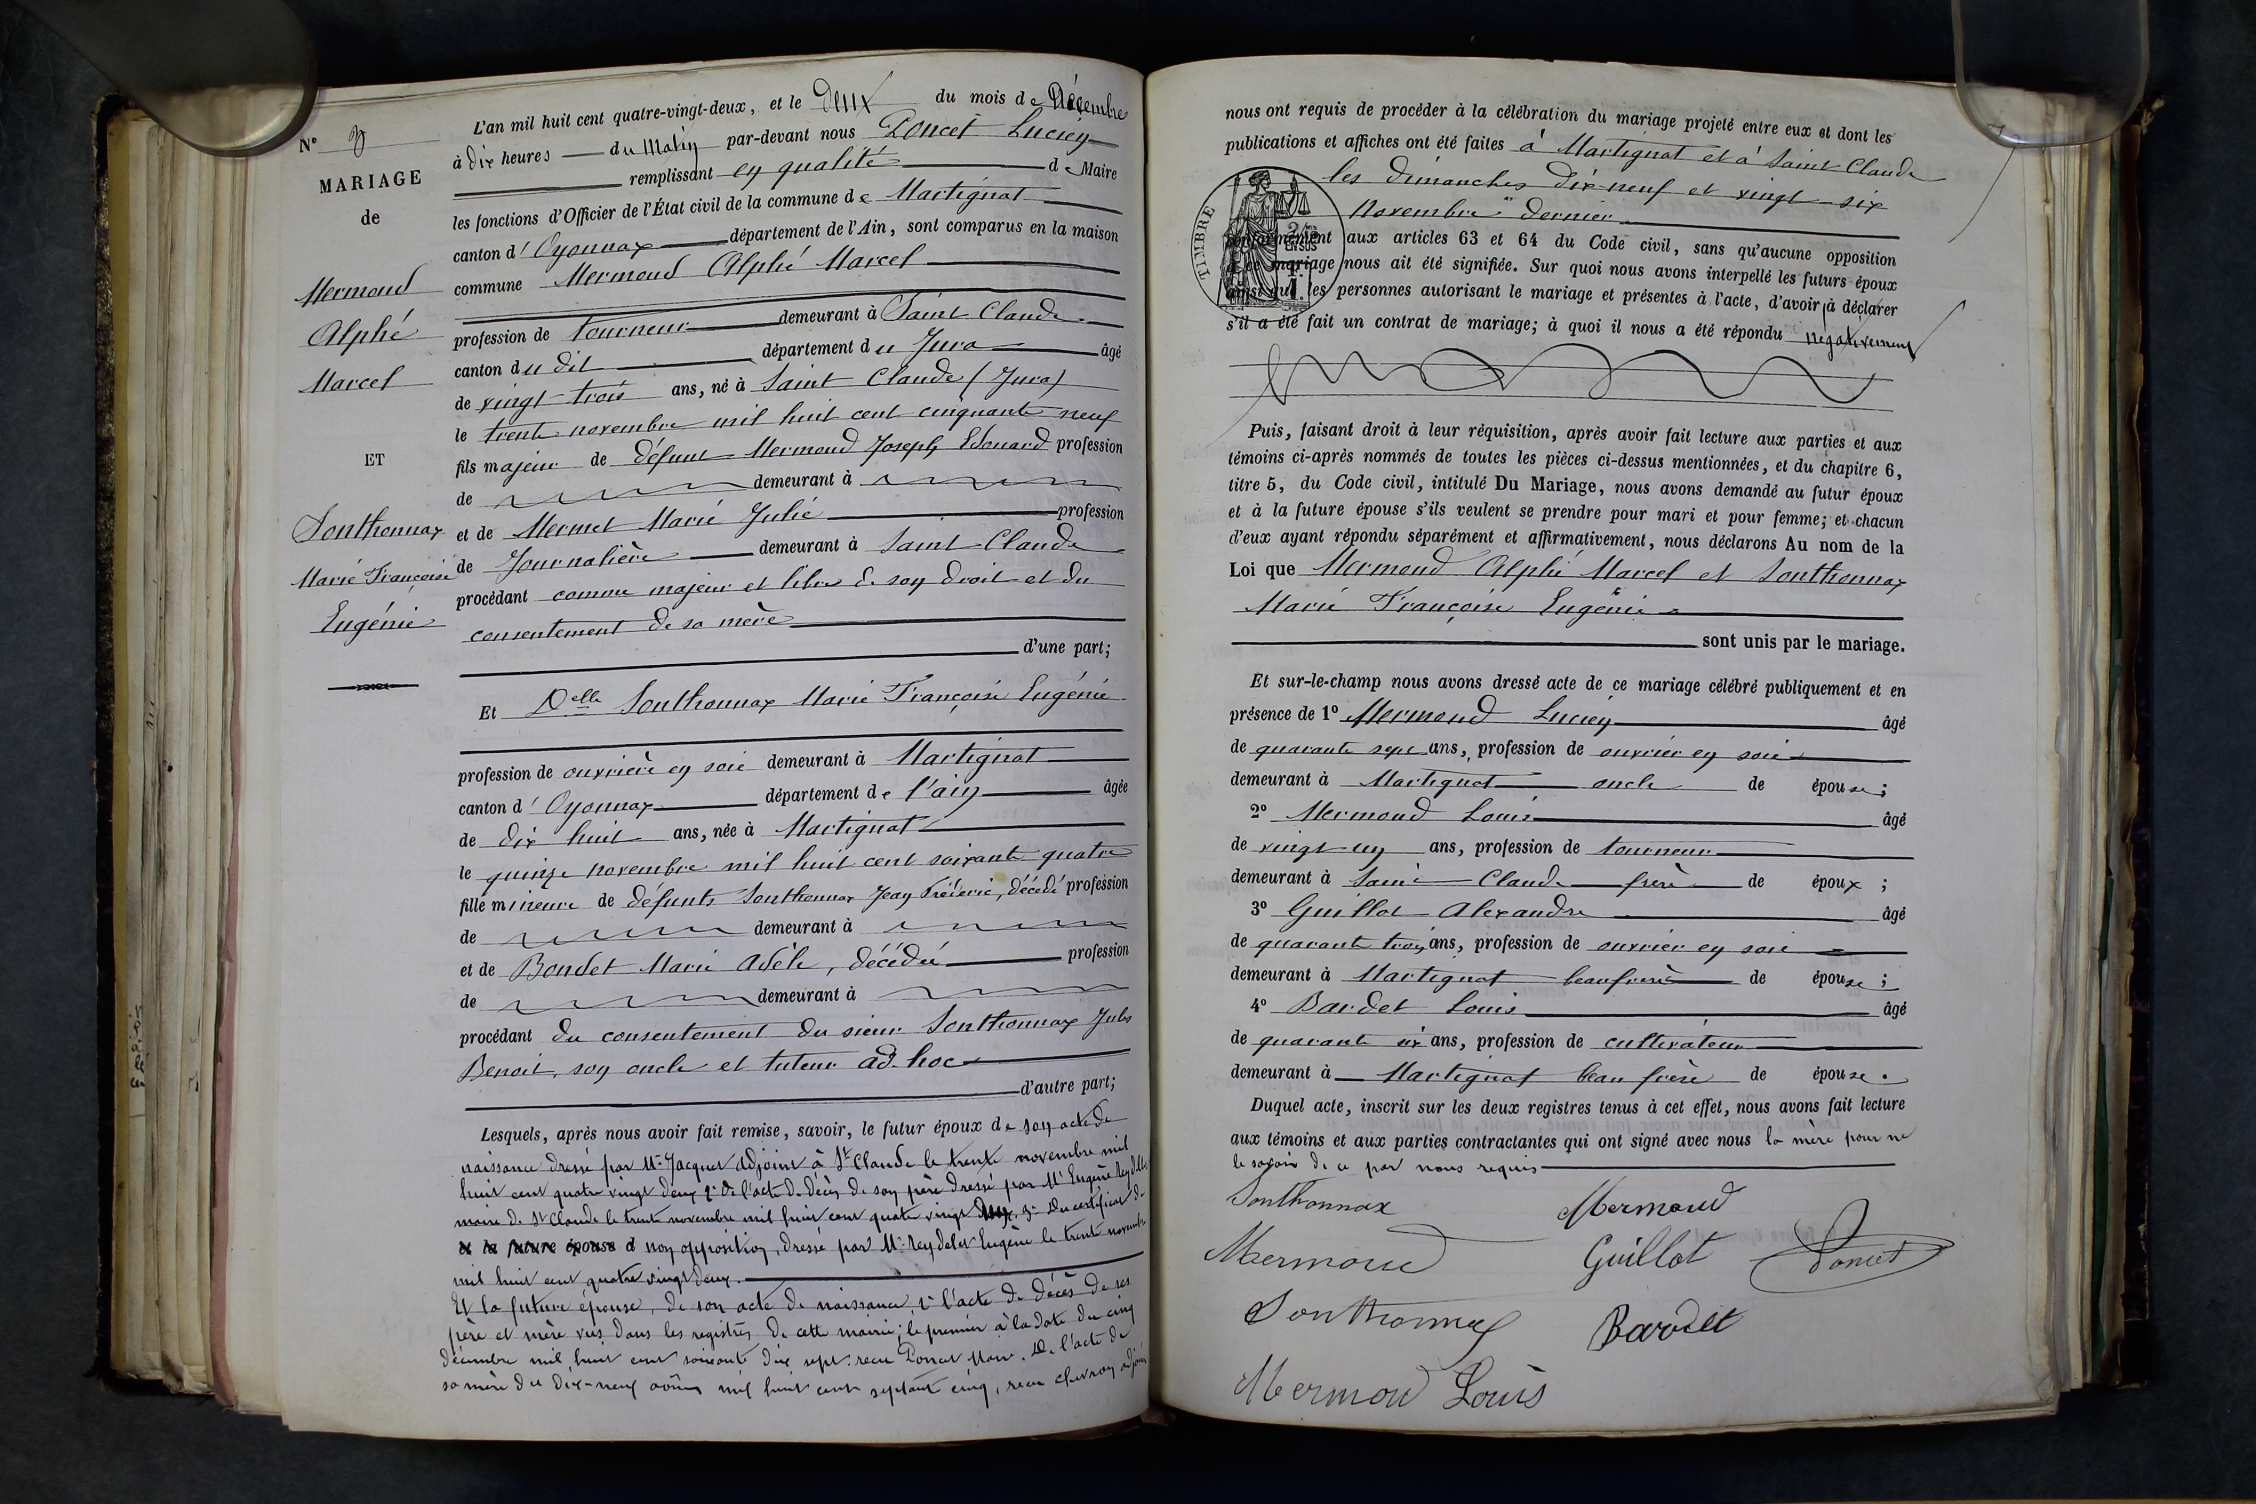 N° 9
MARIAGE
de
Mermoud
Alphé
Marcel
ET
Sonthonnax
Marie Françoise
Eugénie
L'an mil huit cent quatre-vingt-deux, et le deux du mois de Décembre
à dix heures du Matin par-devant nous Poncet Lucien
remplissant en qualité de Maire
les fonctions d'Officier de l'État civil de la commune de Martignat
canton d'Oyonnax département de l'Ain, sont comparus en la maison
commune Mermoud Alphé Marcel
profession de tourneur demeurant à Saint Claude
canton du dit département du Jura âgé
de vingt trois ans, né à Saint Claude (Jura)
le trente novembre mil huit cent cinquante neuf
fils majeur de défunt Mermoud Joseph Edouard profession
de demeurant à
et de Mermet Marie Julie profession
de Journalière demeurant à Saint Claude
procédant comme majeur et libre de son droit et du
consentement de sa mère
d'une part;
Et Delle Sonthonnax Marie Françoise Eugénie
profession de ouvrière en soie demeurant à Martignat
canton d'Oyonnax département de l'ain âgée
de dix huit ans, née à Martignat
le quinze novembre mil huit cent soixante quatre
fille mineure de défunts Sonthonnax Jean Fréderic, décédé profession
de demeurant à
et de Bondet Marie Adèle, décédée profession
de demeurant à
procédant du consentement du sieur Sonthonnax Jules
Benoit, son oncle et tuteur ad-hoc
d'autre part;
Lesquels, après nous avoir fait remise, savoir, le futur époux de son acte de
naissance dressé par Mr Jacquet adjoint à St Claude le trente novembre mil
huit cent quatre vingt deux 2° de l'acte de décès de son père dressé par Mr Eugène Reydelet
maire de St Claude le trente novembre mil huit cent quatre vingt deux. 3° Du certificat de
et la future épouse d non opposition, dressé par Mr Reydelet Eugène le trente novembre
mil huit cent quatre vingt deux.
Et la future épouse, de son acte de naissance, 2° l'acte de décès de ses
père et mère vus dans les registres de cette mairie; le premier à la date du cinq
décembre mil huit cent soixante dix sept: recu Poncet Maire. De l'acte de
sa mère du dix-neuf mil huit cent septante cinq, recu Chevron adjoint
nous ont requis de procéder à la célébration du mariage projeté entre eux et dont les
publications et affiches ont été faites à Martignat et à Saint Claude
les dimanches dix-neuf et vingt six
Novembre dernier
TIMBRE
conformément aux articles 63 et 64 du Code civil, sans qu'aucune opposition
à ce mariage nous ait été signifiée. Sur quoi nous avons interpellé les futurs époux
ainsi que les personnes autorisant le mariage et présentes à l'acte, d'avoir à déclarer
s'il a été fait un contrat de mariage; à quoi il nous a été répondu négativement
Puis, faisant droit à leur réquisition, après avoir fait lecture aux parties et aux
témoins ci-après nommés de toutes les pièces ci-dessus mentionnées, et du chapitre 6,
titre 5, du Code civil, intitulé Du Mariage, nous avons demandé au futur époux
et à la future épouse s'ils veulent se prendre pour mari et pour femme; et chacun
d'eux ayant répondu séparément et affirmativement, nous déclarons Au nom de la
Loi que Mermoud Alphé Marcel et Sonthonnax
Marie Françoise Eugénie
sont unis par le mariage.
Et sur-le-champ nous avons dressé acte de ce mariage célébré publiquement et en
présence de 1° Mermoud Lucien âgé
de quarante sept ans, profession de ouvrier en soie
demeurant à Martignat oncle de épouse;
2° Mermoud Louis âgé
de vingt un ans, profession de tourneur
demeurant à Saint Claude frère de époux;
3° Guillot Alexandre âgé
de quarante trois ans, profession de ouvrier en soie
demeurant à Martignat beaufrère de épouse;
4° Bardet Louis âgé
de quarante six ans, profession de cultivateur
demeurant à Martignat beau frère de épouse.
Duquel acte, inscrit sur les deux registres tenus à cet effet, nous avons fait lecture
aux témoins et aux parties contractantes qui ont signé avec nous la mère pour ne
le savoir de ce par nous requis
Sonthonnax Mermoud
Mermoud Guillot Poncet
Sonthonnax Bardet
Mermoud Louis